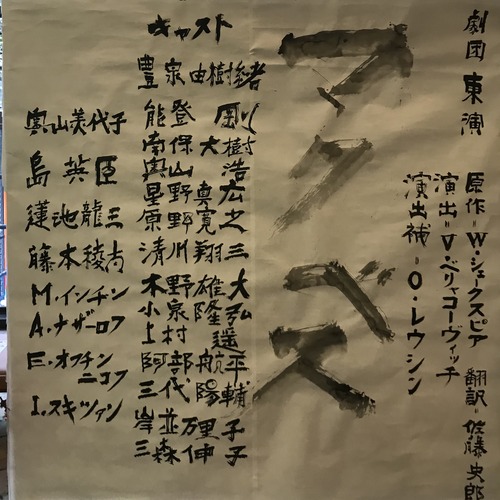 劇団 東演
原作=W・シェークスピア 翻訳=佐藤史郎
演出=V・ベリャコーヴィッチ
演出補=O・レウシン
マクベス
キャスト
豊泉由樹緒
能登 剛
南保大樹
奥山 浩
星野真広
原野寛之
清川翔三
木野雄大
小泉隆弘
上村 遥
阿部航平
三代陽輔
岸並万里子
三森伸子
奥山美代子
島 英臣
蓮池龍三
藤本稜
M・インチン
A・ナザーロフ
E・オフチン
ニコフ
I・スキツァン